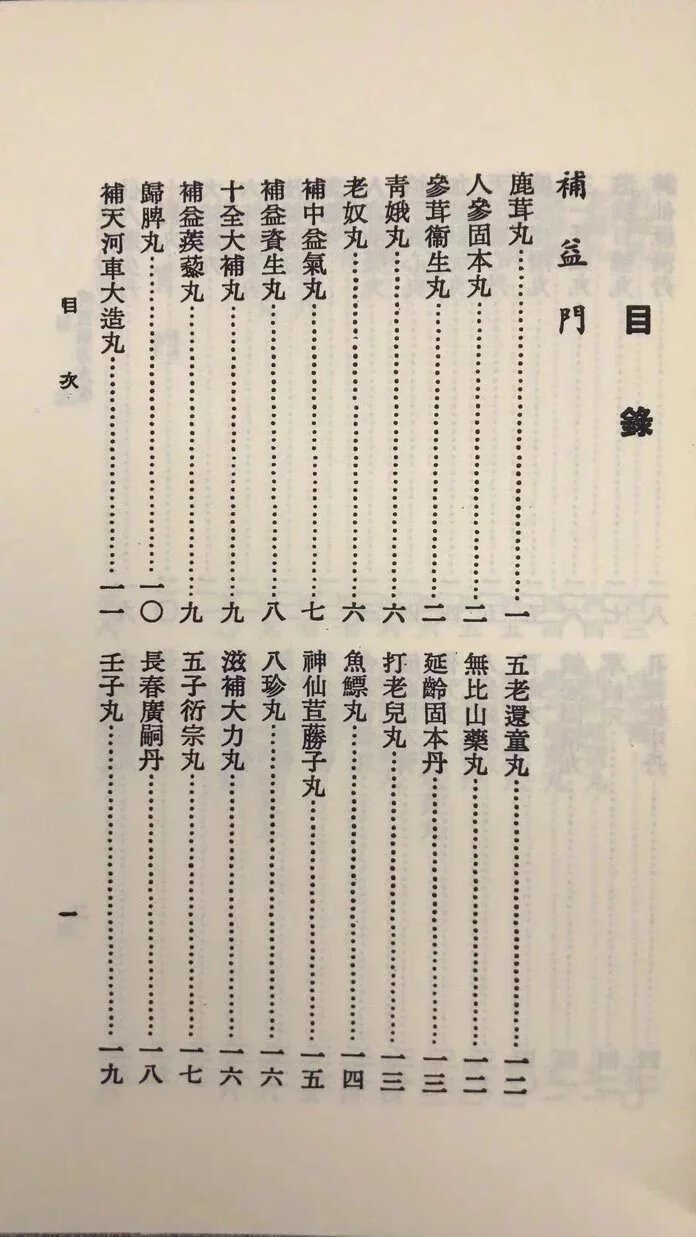 目錄
補益門
鹿茸丸……一
人參固本丸……二
參茸衞生丸……二
青娥丸……六
老奴丸……六
補中益氣丸……七
補益資生丸……八
十全大補丸……九
補益蒺藜丸……九
歸脾丸……一〇
補天河車大造丸……一一
五老還童丸……一二
無比山藥丸……一二
延齡固本丹……一三
打老兒丸……一三
魚鰾丸……一四
神仙苣藤子丸……一五
八珍丸……一六
滋補大力丸……一六
五子衍宗丸……一七
長春廣嗣丹……一八
壬子丸……一九
目次
一